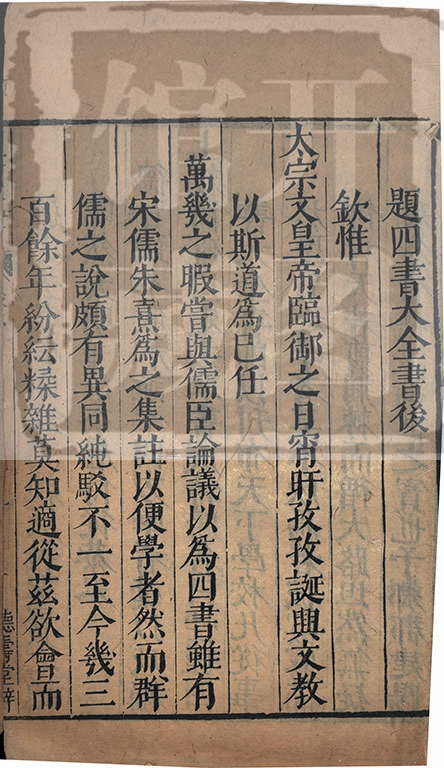 題四書大全書後
欽惟
太宗文皇帝臨御之日宵旰孜孜誕興文教
以斯道爲己任
萬幾之暇嘗與儒臣論議以爲四書雖有
宋儒朱熹爲之集註以便學者然而羣
儒之說頗有異同純駁不一至今幾三
百餘年紛紜糅雜莫知適從茲欲會而
德壽堂梓